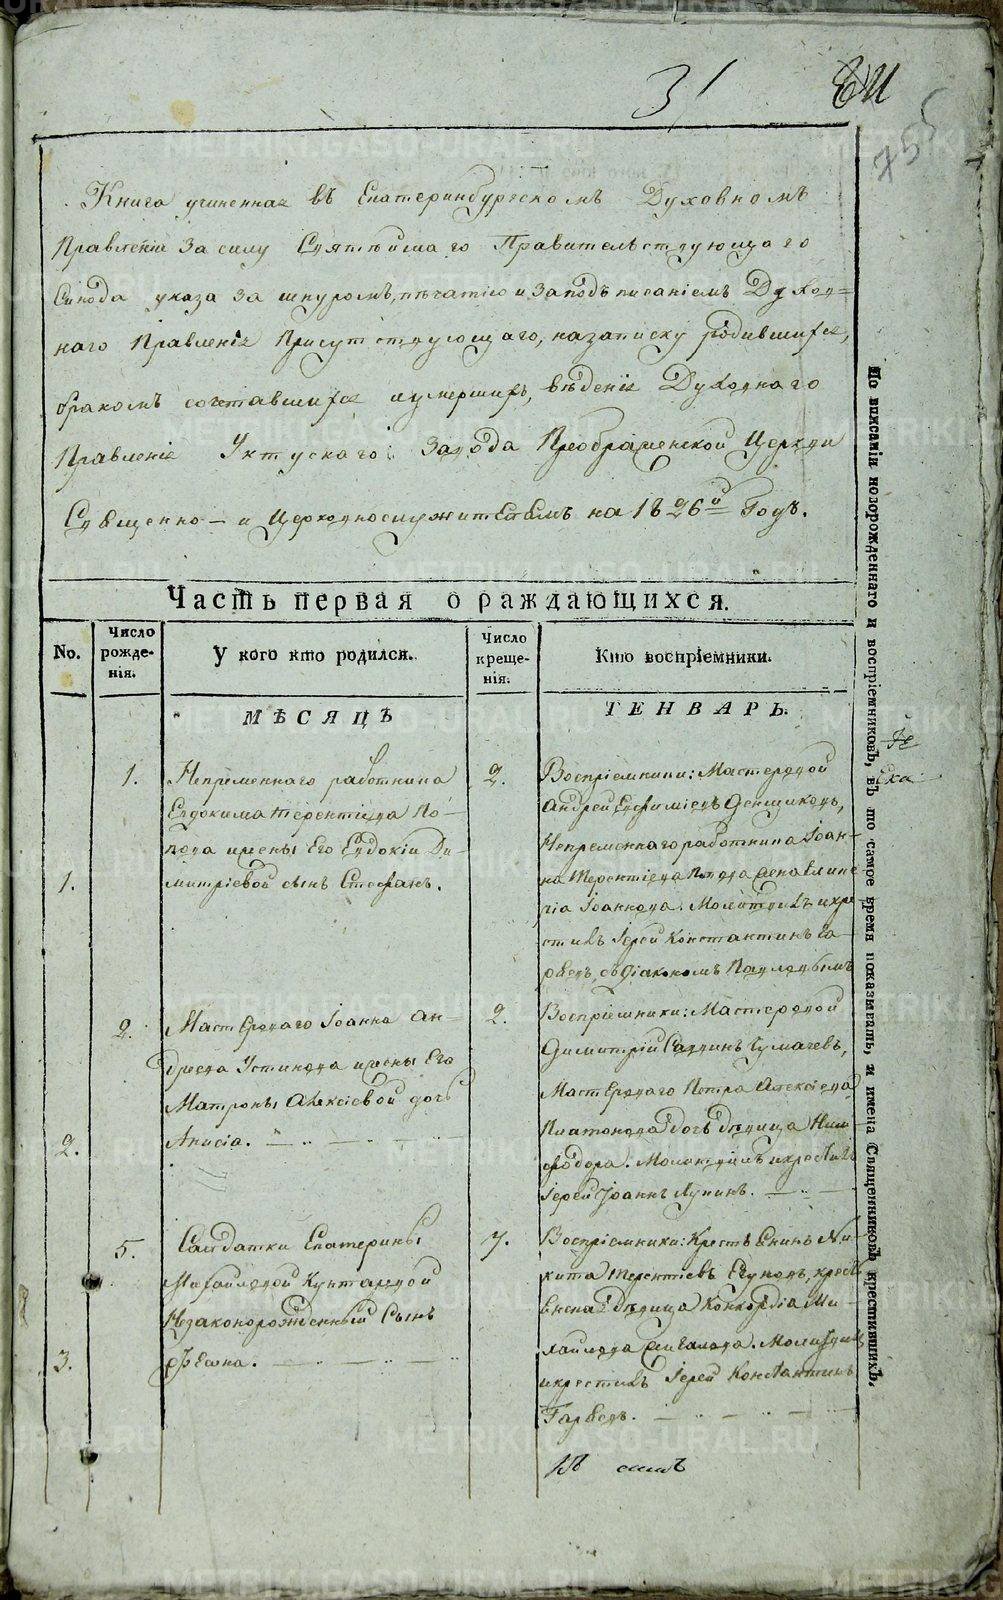 31
755
Книга учиненная въ Екатеринбургскомъ Духовномъ
Правленіи за силу Святѣйшаго Правительствующаго
Сѵнода указа за шнуромъ, печатію и заподъписаніемъ Духов=
наго Правленія Присутствующаго, назаписку родившихся,
бракомъ сочетавшихся иумершихъ, вѣденія Духовнаго
Правленія Уктускаго Завода Преображенской Церкви
Священно- и Церковнослужителемъ на 1826й Годъ.
Часть первая о раждающихся.
No.
Число рожденія.
У кого кто родился.
Число крещенія.
Кто воспріемники.
МѢСЯЦЪ
ГЕНВАРЬ.
1.
1.
Непременнаго работника
Евдокима Терентіева По-
пова ижены Его Евдокіи Ди-
митріевой сынъ Стефанъ.
2.
Воспріемники: Мастеровой
Андрей Евфиміевъ Денщиковъ,
Непременнаго работника Іоан-
на Терентіева Попова
Іоаннова. Молитвилъ икре-
стилъ Іерей Константинъ
съ Діакономъ Павловымъ
2.
2.
Мастероваго Іоанна Ан-
дреева Устинова ижены Его
Матроны Алексіевой дочь
Анисіа.
2.
Воспріемники: Мастеровой
Димитрій Саввинъ Чумачевъ,
Мастероваго Петра Алексіева
Платонова дочь дѣвица Ним-
фодора. Молитвилъ икрестилъ
Іерей Іоаннъ Лупинъ.
3.
5.
Салдатки Екатерины
Михайловой Кунтаревой
Незаконорожденный Сынъ
Феона.
7.
Воспріемники: Крестьянинъ Ни-
кита Терентіевъ Егуновъ, кресть
янска дѣвица Конкордіа Ми-
хайлова. Молитвилъ
икрестилъ Іерей Константинъ
По вписаніи новорожденнаго и воспріемниковъ, въ то самое время показывать, и имена Священниковъ крестившихъ.